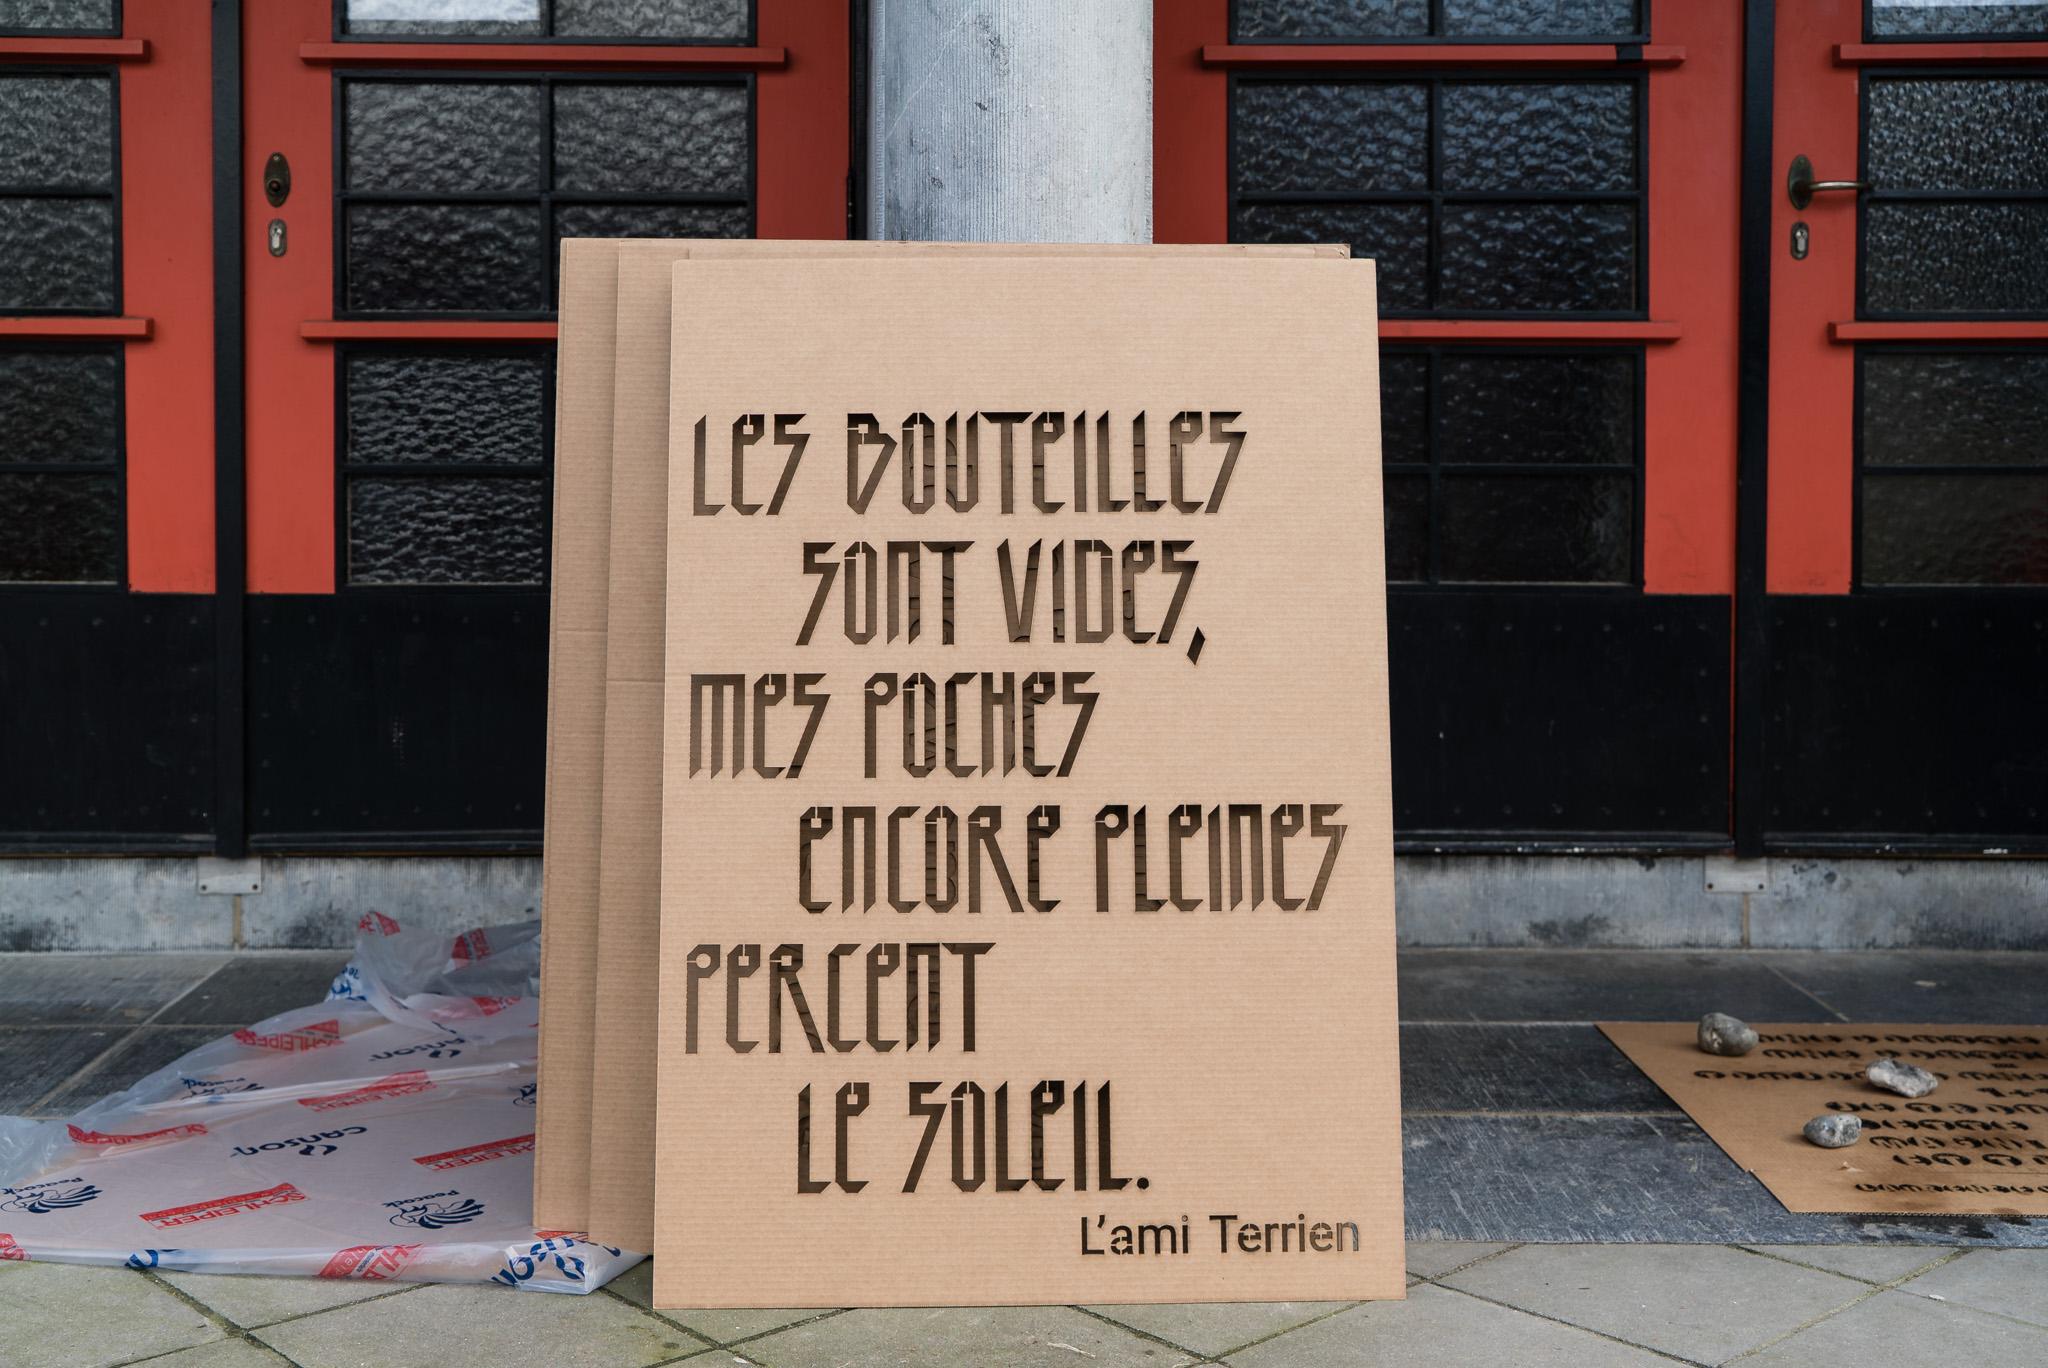 Les Bouteilles
sont vides,
mes poches
encore pleines
percent
le soleil.
L'ami Terrien
SCHLEIPER
canson
SCHLEIPER
Peacock
canson
SCHLEIPER
SCHLEIPER
Peacock